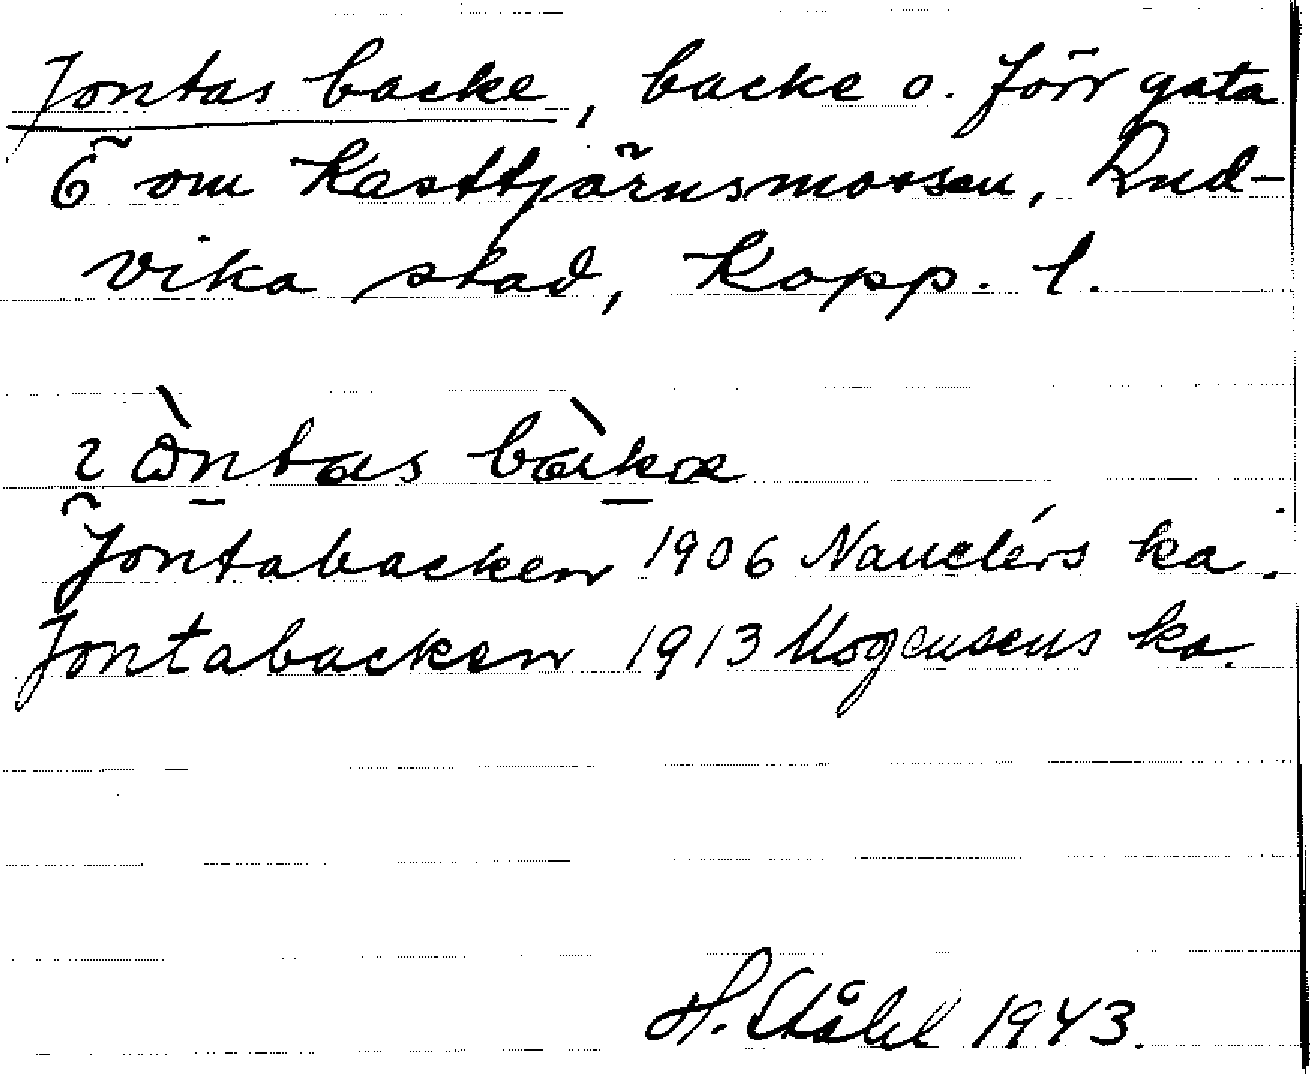 Jontas backe, backe o. förr gata
Ö om Kasttjärnsmossen, Lud-
vika stad, Kopp. l.
Jontabacken 1906 Nauclérs ka.
Jontabacken 1913 Mogensens ka.
H. Ståhl 1943.